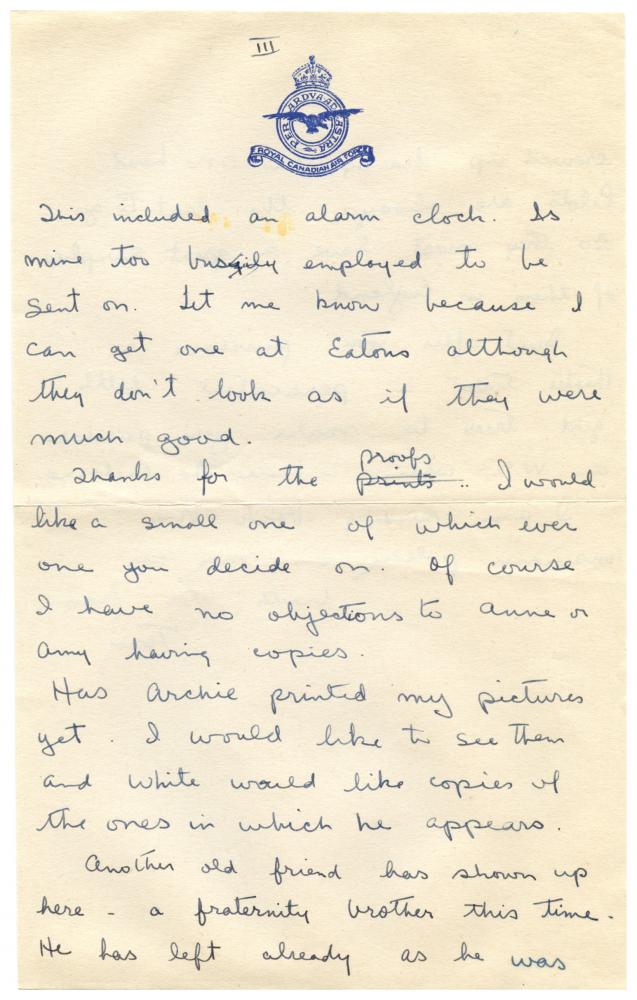 III
PER ARDVA AD ASTRA
ROYAL CANADIAN AIR FORCE
This included an alarm clock. Is
mine too busily employed to be
sent on. Let me know because I
can get one at Eatons although
they don't look as if they were
much good.
Thanks for the prints proofs. I would
like a small one of which ever
one you decide on. Of course
I have no objections to Anne or
Amy having copies.
Has Archie printed my pictures
yet. I would like to see them
and White would like copies of
the ones in which he appears.
Another old friend has shown up
here - a fraternity brother this time.
He has left already as he was